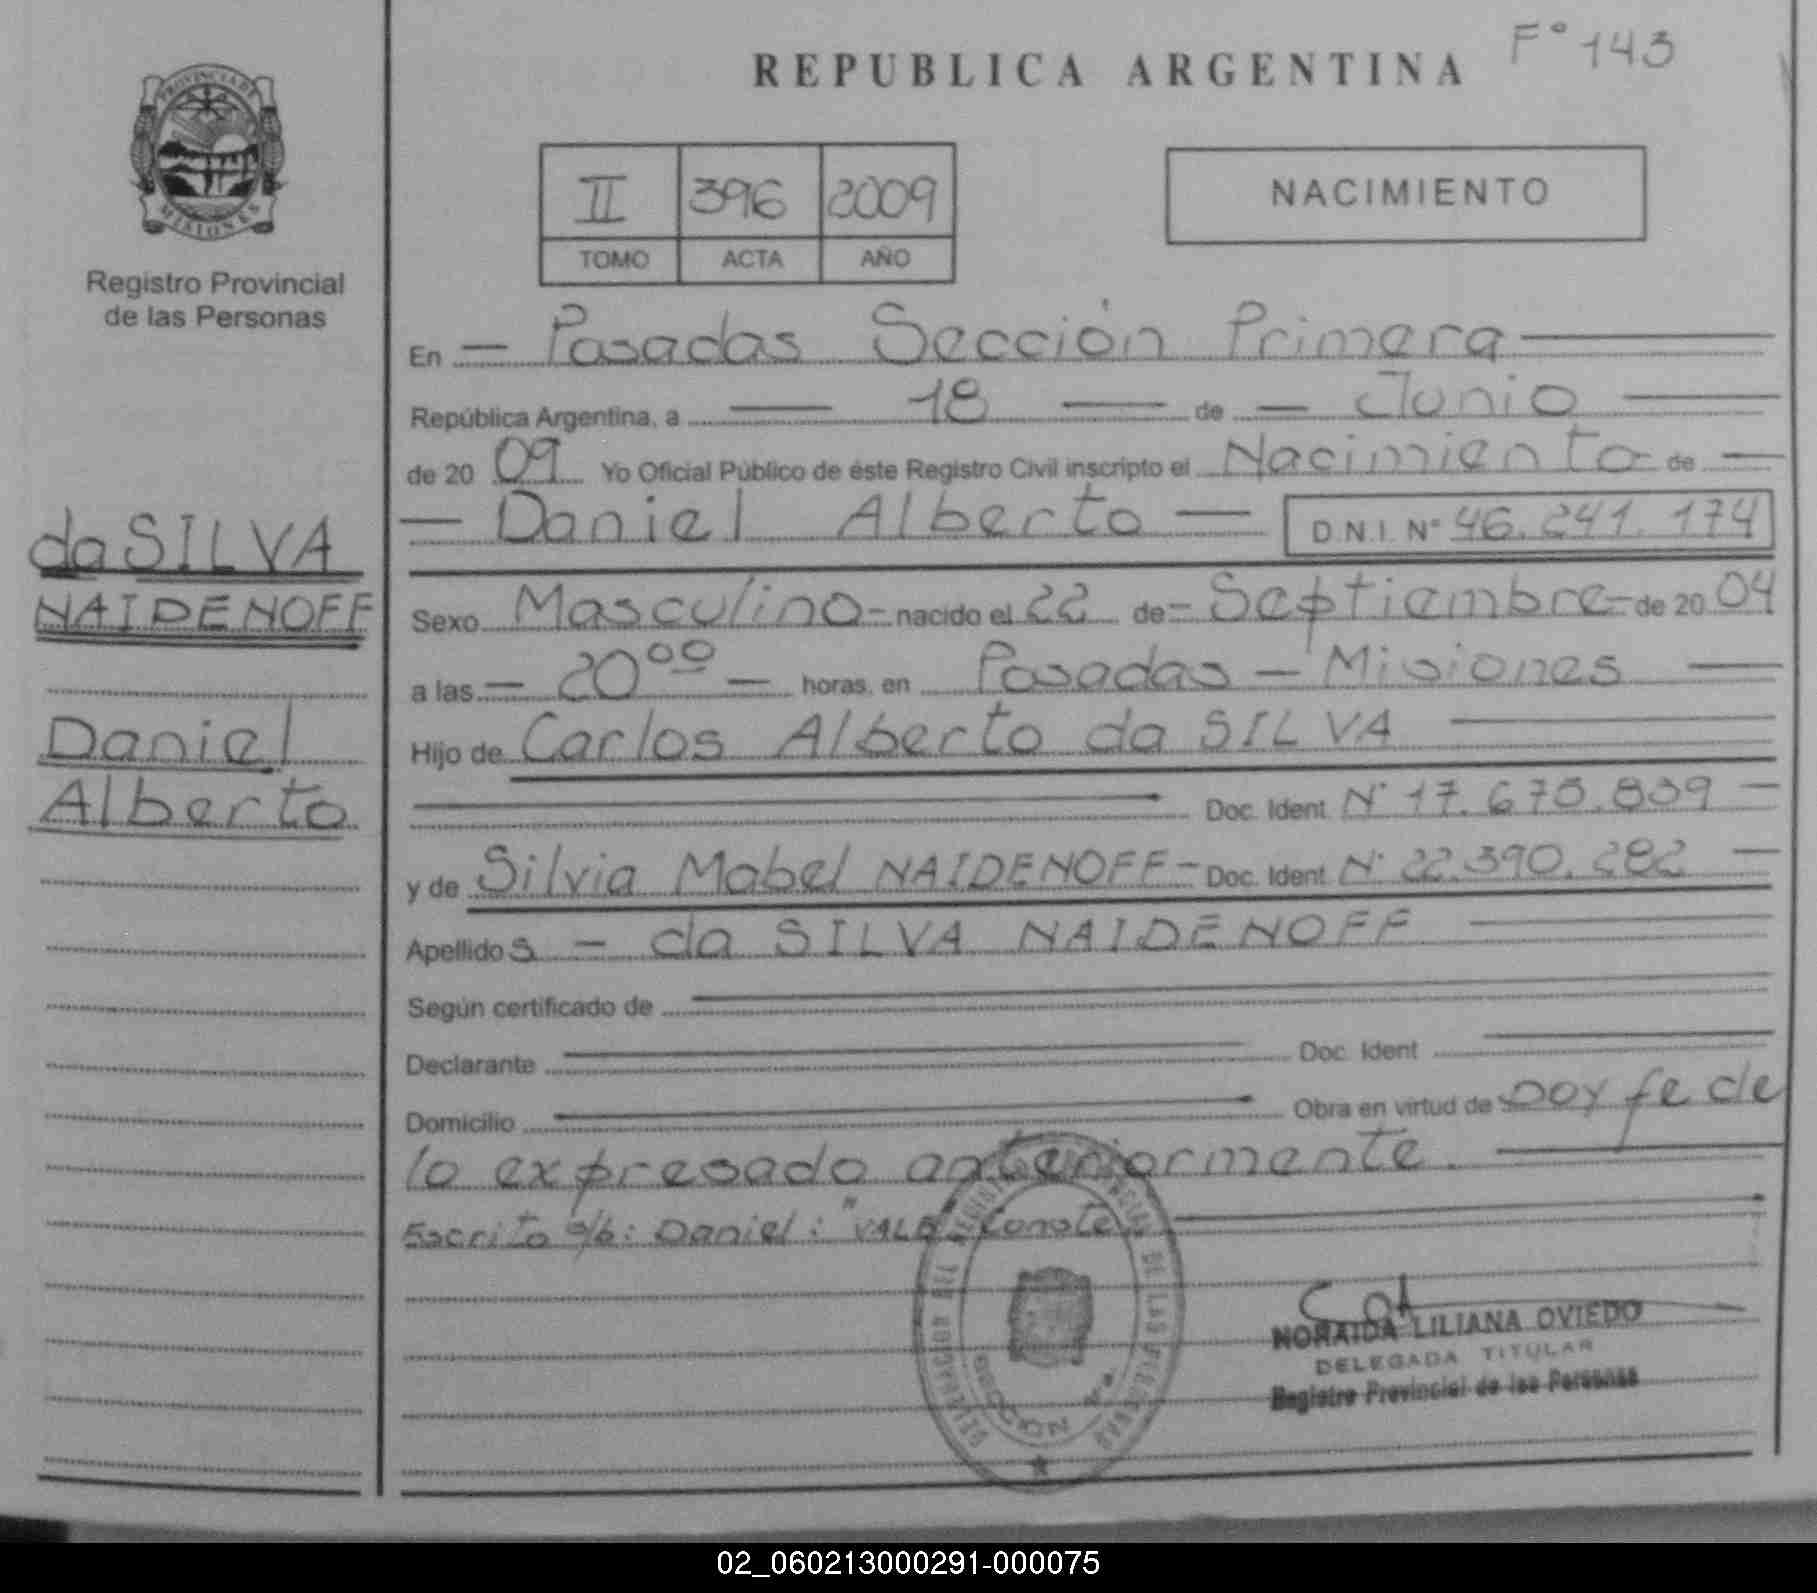 F° 143
REPUBLICA ARGENTINA
PROVINCIA DE
MISIONES
Registro Provincial
de las Personas
II 396 2009
TOMO ACTA AÑO
NACIMIENTO
En — Posadas Sección Primera
República Argentina, a — 18 — de — Junio —
de 20 09 Yo Oficial Público de éste Registro Civil inscripto el Nacimiento de —
— Daniel Alberto — D.N.I. N° 46.241.174
da SILVA
NAIDENOFF
Daniel
Alberto
Sexo Masculino - nacido el 22 de - Septiembre - de 20 04
a las — 20⁰⁰ — horas, en Posadas — Misiones —
Hijo de Carlos Alberto da SILVA
Doc. Ident. N° 17.675.839 —
y de Silvia Mabel NAIDENOFF - Doc. Ident. N° 22.390.282 —
Apellidos - da SILVA NAIDENOFF
Según certificado de
Declarante Doc. Ident
Domicilio Obra en virtud de Doy fe de
lo expresado anteriormente.
Escrito s/b: Daniel: "VALE" Conste
DE LAS
SECCION 1ra.
NORAIDA LILIANA OVIEDO
DELEGADA TITULAR
Registro Provincial de las Personas
02_060213000291-000075